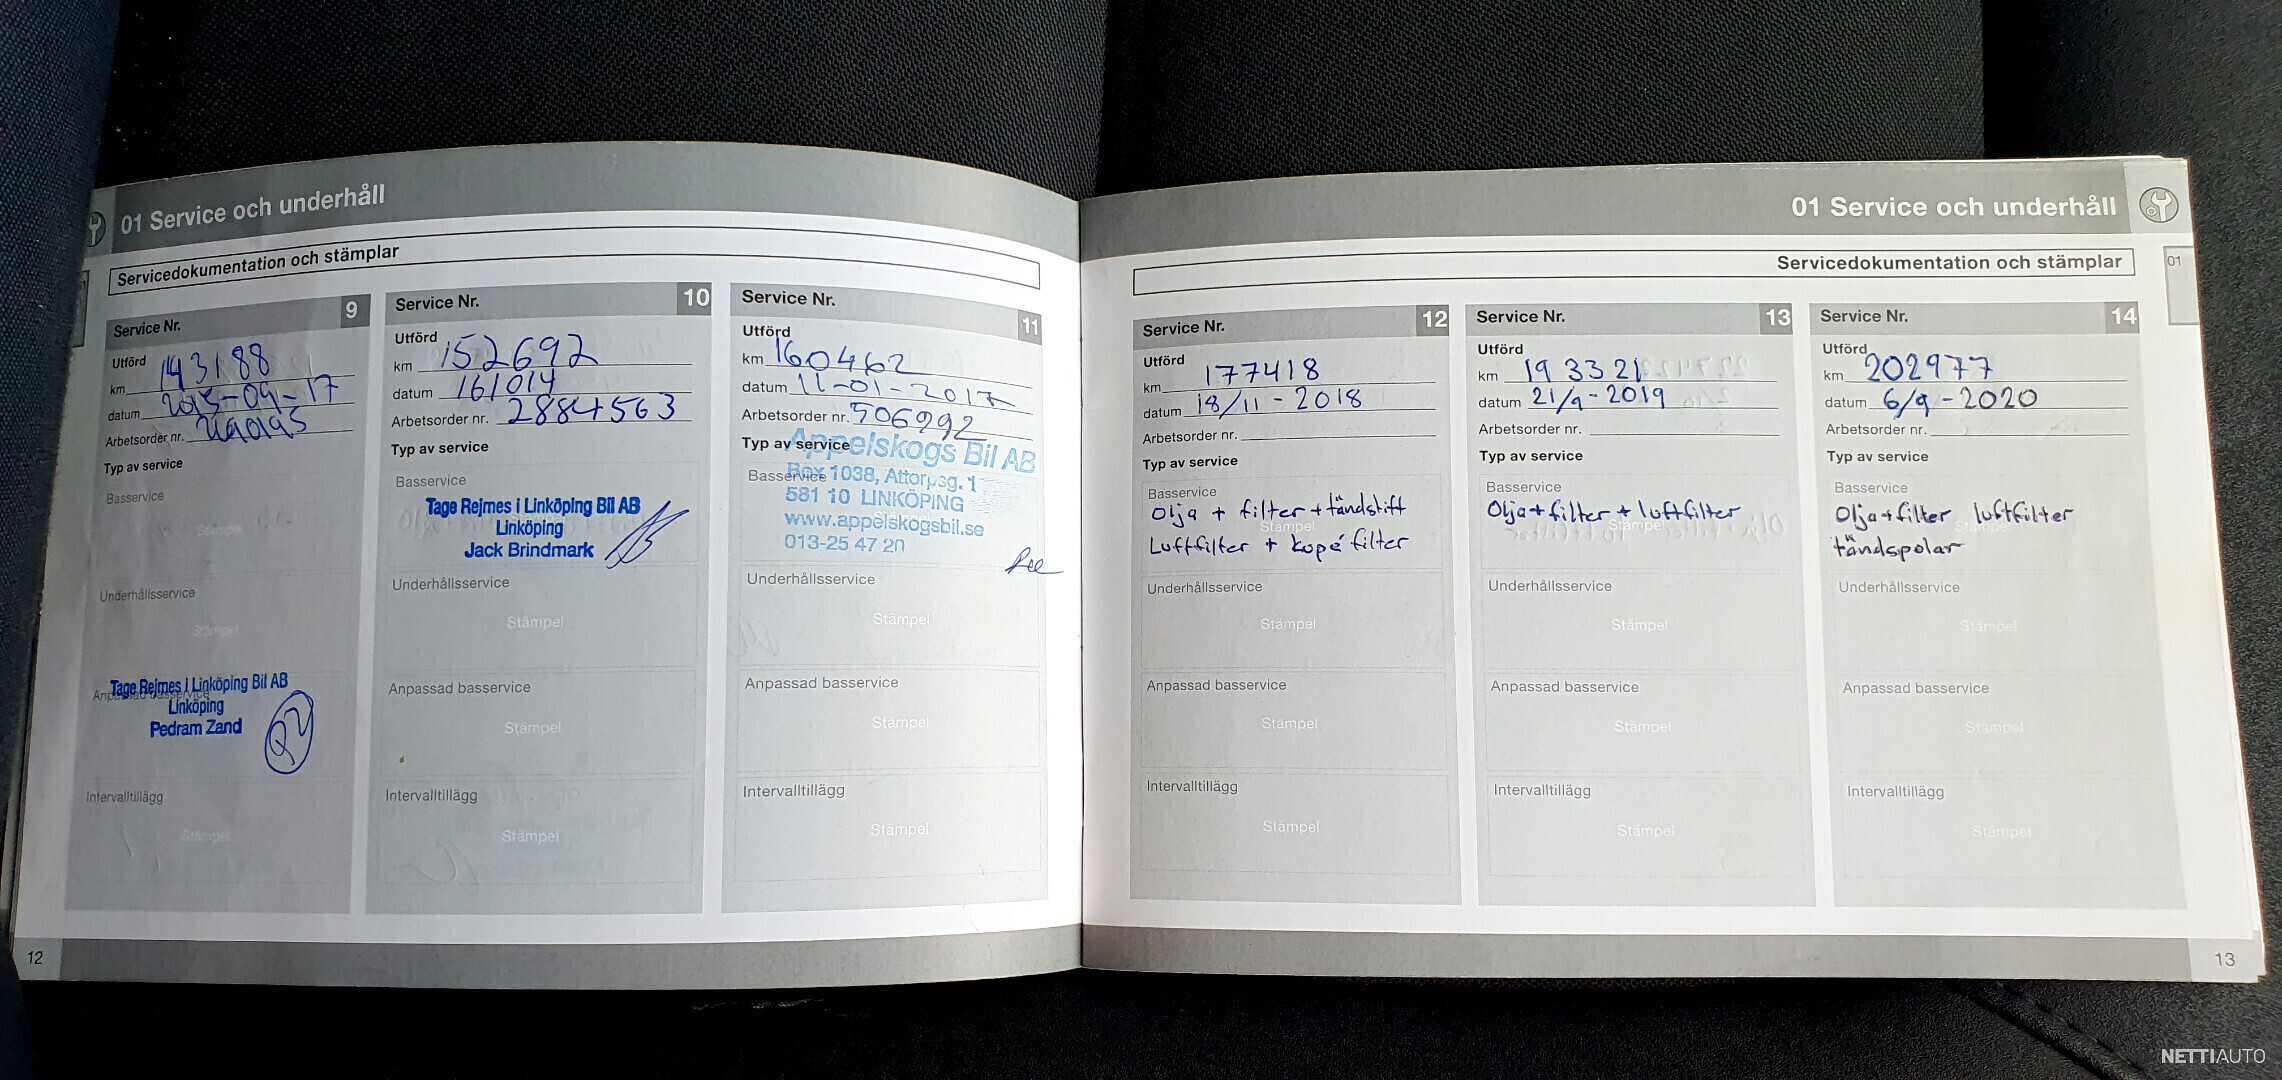 01 Service och underhåll
Servicedokumentation och stämplar
Service Nr. 9
Utförd
km 143188
datum 2015-09-17
Arbetsorder nr.
Typ av service
Basservice
Stämpel
Underhållsservice
Stämpel
Anpassad basservice
Tage Rejmes i Linköping Bil AB
Linköping
Pedram Zand
Intervalltillägg
Stämpel
12
Service Nr. 10
Utförd
km 152692
datum 161014
Arbetsorder nr. 2884563
Typ av service
Basservice
Tage Rejmes i Linköping Bil AB
Linköping
Jack Brindmark
Underhållsservice
Stämpel
Anpassad basservice
Stämpel
Intervalltillägg
Stämpel
Service Nr. 11
Utförd
km 160462
datum 11-01-2017
Arbetsorder nr. 506992
Typ av service
Appelskogs Bil AB
Basservice
Box 1038, Attorpsg. 1
581 10 LINKÖPING
www.appelskogsbil.se
013-25 47 20
Underhållsservice
Stämpel
Anpassad basservice
Stämpel
Intervalltillägg
Stämpel
01 Service och underhåll
Servicedokumentation och stämplar
01
Service Nr. 12
Utförd
km 177418
datum 18/11-2018
Arbetsorder nr.
Typ av service
Basservice
Olja + filter + tändstift
Stämpel
Luftfilter + kupé filter
Underhållsservice
Stämpel
Anpassad basservice
Stämpel
Intervalltillägg
Stämpel
Service Nr. 13
Utförd
km 193321
datum 21/9-2019
Arbetsorder nr.
Typ av service
Basservice
Olja+filter + luftfilter
Stämpel
Underhållsservice
Stämpel
Anpassad basservice
Stämpel
Intervalltillägg
Stämpel
Service Nr. 14
Utförd
km 202977
datum 6/9-2020
Arbetsorder nr.
Typ av service
Basservice
Olja+filter luftfilter
tändspolar
Underhållsservice
Stämpel
Anpassad basservice
Stämpel
Intervalltillägg
Stämpel
13
NETTIAUTO